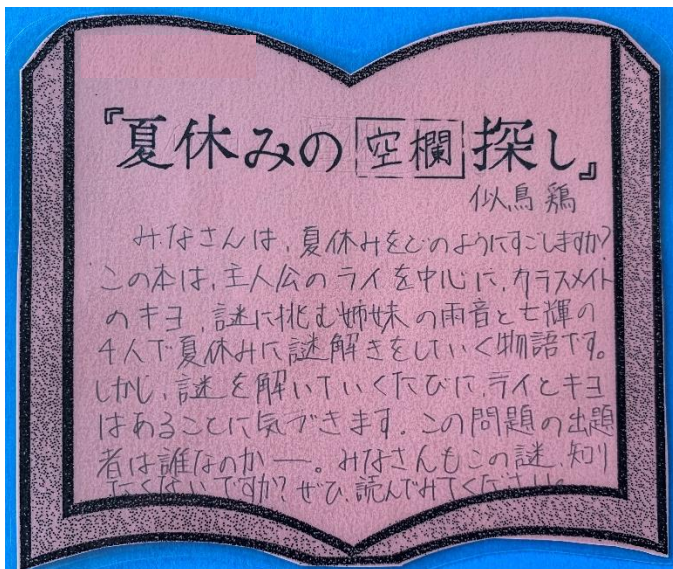 『夏休みの空欄探し』
似鳥 鶏
みなさんは、夏休みをどのようにすごしますか?
この本は、主人公のライを中心に、カラスメイト
のキヨ、謎に挑む姉妹の雨音と七輝の
4人で夏休みに謎解きをしていく物語です。
しかし、謎を解いていくたびに、ライとキヨ
はあることに気づきます。この問題の出題
者は誰なのか―。みなさんもこの謎、知り
たくないですか?ぜひ、読んでみてください。